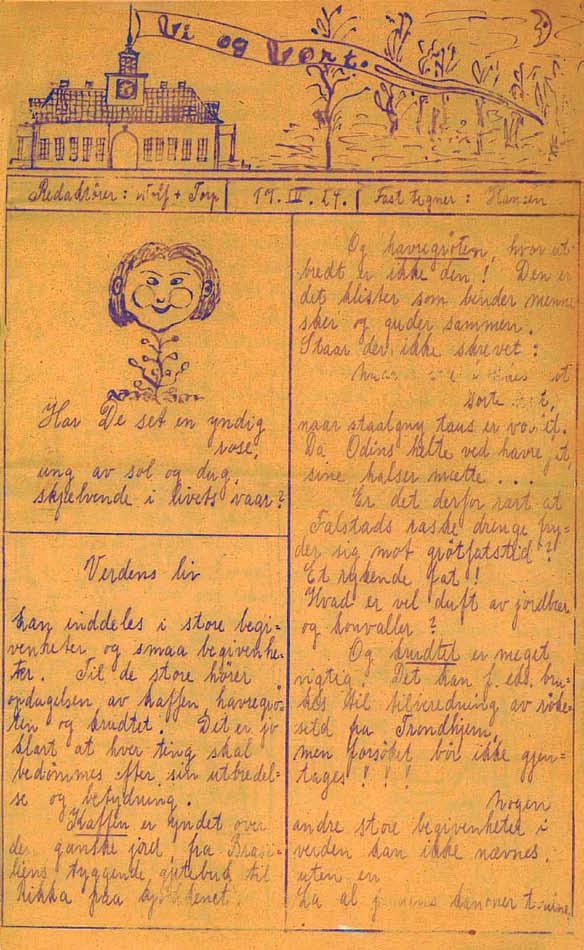 Vi og Vort.
Redaktører: Wolf + Torp 19. III. 24. Fast tegner: Hansen
Har De set en yndig
rose,
ung av sol og dug,
skjælvende i livets vaar?
Verdens liv
kan inddeles i store begi-
venheter og smaa begivenhe-
ter. Til de store hører
opdagelsen av kaffen, havregrø-
ten og krudtet. Det er jo
klart at hver ting skal
bedømmes efter sin utbredel-
se og betydning.
Kaffen er yndet over
den ganske jord, fra Brasi-
liens tyggende gjætebud til
Kikka paa
Og havregrøten, hvor ut-
bredt er ikke den! Den er
det klister som binder menne
sker og guder sammen.
Staar der ikke skrevet:
sorte
naar staalgny taus er
Da Odins helte ved havre
sine halser mætte . . .
Er det derfor rart at
Falstads raske drenge fry-
der sig mot grøtfatstid?
Et rykende fat!
Hvad er vel duft av jordbær
og konvaller?
Og krudtet er meget
vigtig. Det kan f. eks. bru-
kes til tilberedning av røke-
sild fra Trondhjem,
men forsøket bør ikke gjen-
tages!!!
Nogen
andre store begivenheter i
verden kan ikke nævnes.
uten en
La al kanoner